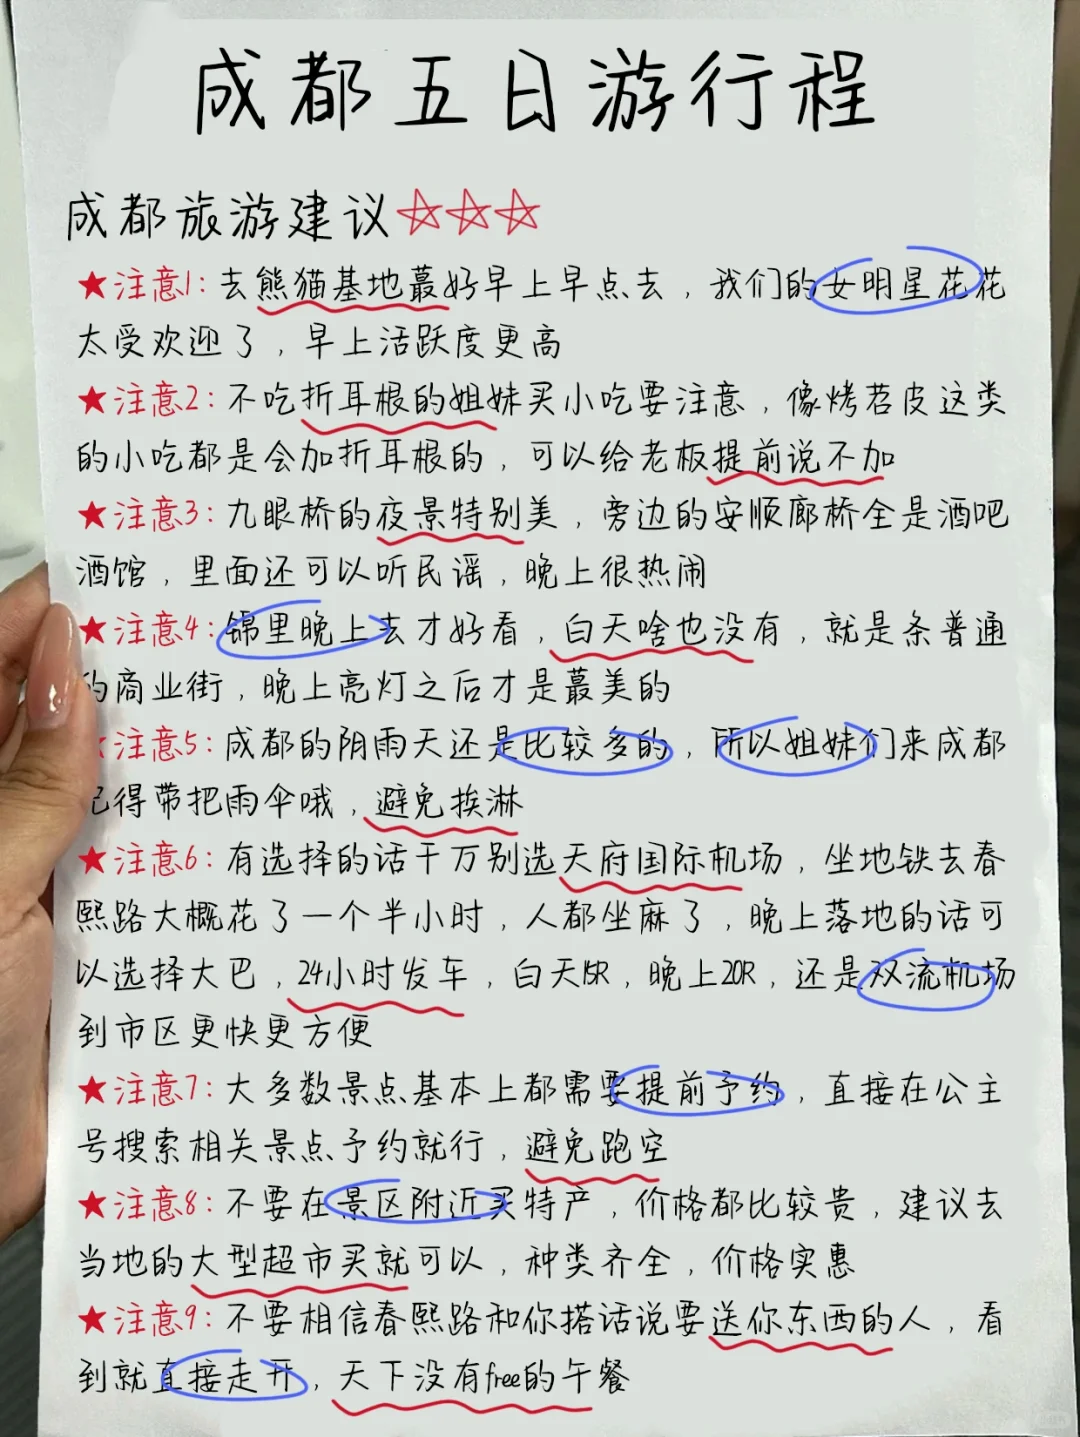 成都五日游行程
成都旅游建议
★注意1：去熊猫基地最好早上早点去，我们的女明星花花
太受欢迎了，早上活跃度更高
★注意2：不吃折耳根的姐妹买小吃要注意，像烤苕皮这类
的小吃都是会加折耳根的，可以给老板提前说不加
★注意3：九眼桥的夜景特别美，旁边的安顺廊桥全是酒吧
酒馆，里面还可以听民谣，晚上很热闹
★注意4：锦里晚上去才好看，白天啥也没有，就是条普通
的商业街，晚上亮灯之后才是最美的
★注意5：成都的阴雨天还是比较多的，所以姐妹们来成都
记得带把雨伞哦，避免挨淋
★注意6：有选择的话千万别选天府国际机场，坐地铁去春
熙路大概花了一个半小时，人都坐麻了，晚上落地的话可
以选择大巴，24小时发车，白天15R，晚上20R，还是双流机场
到市区更快更方便
★注意7：大多数景点基本上都需要提前予约，直接在公主
号搜索相关景点予约就行，避免跑空
★注意8：不要在景区附近买特产，价格都比较贵，建议去
当地的大型超市买就可以，种类齐全，价格实惠
★注意9：不要相信春熙路和你搭话说要送你东西的人，看
到就直接走开，天下没有free的午餐